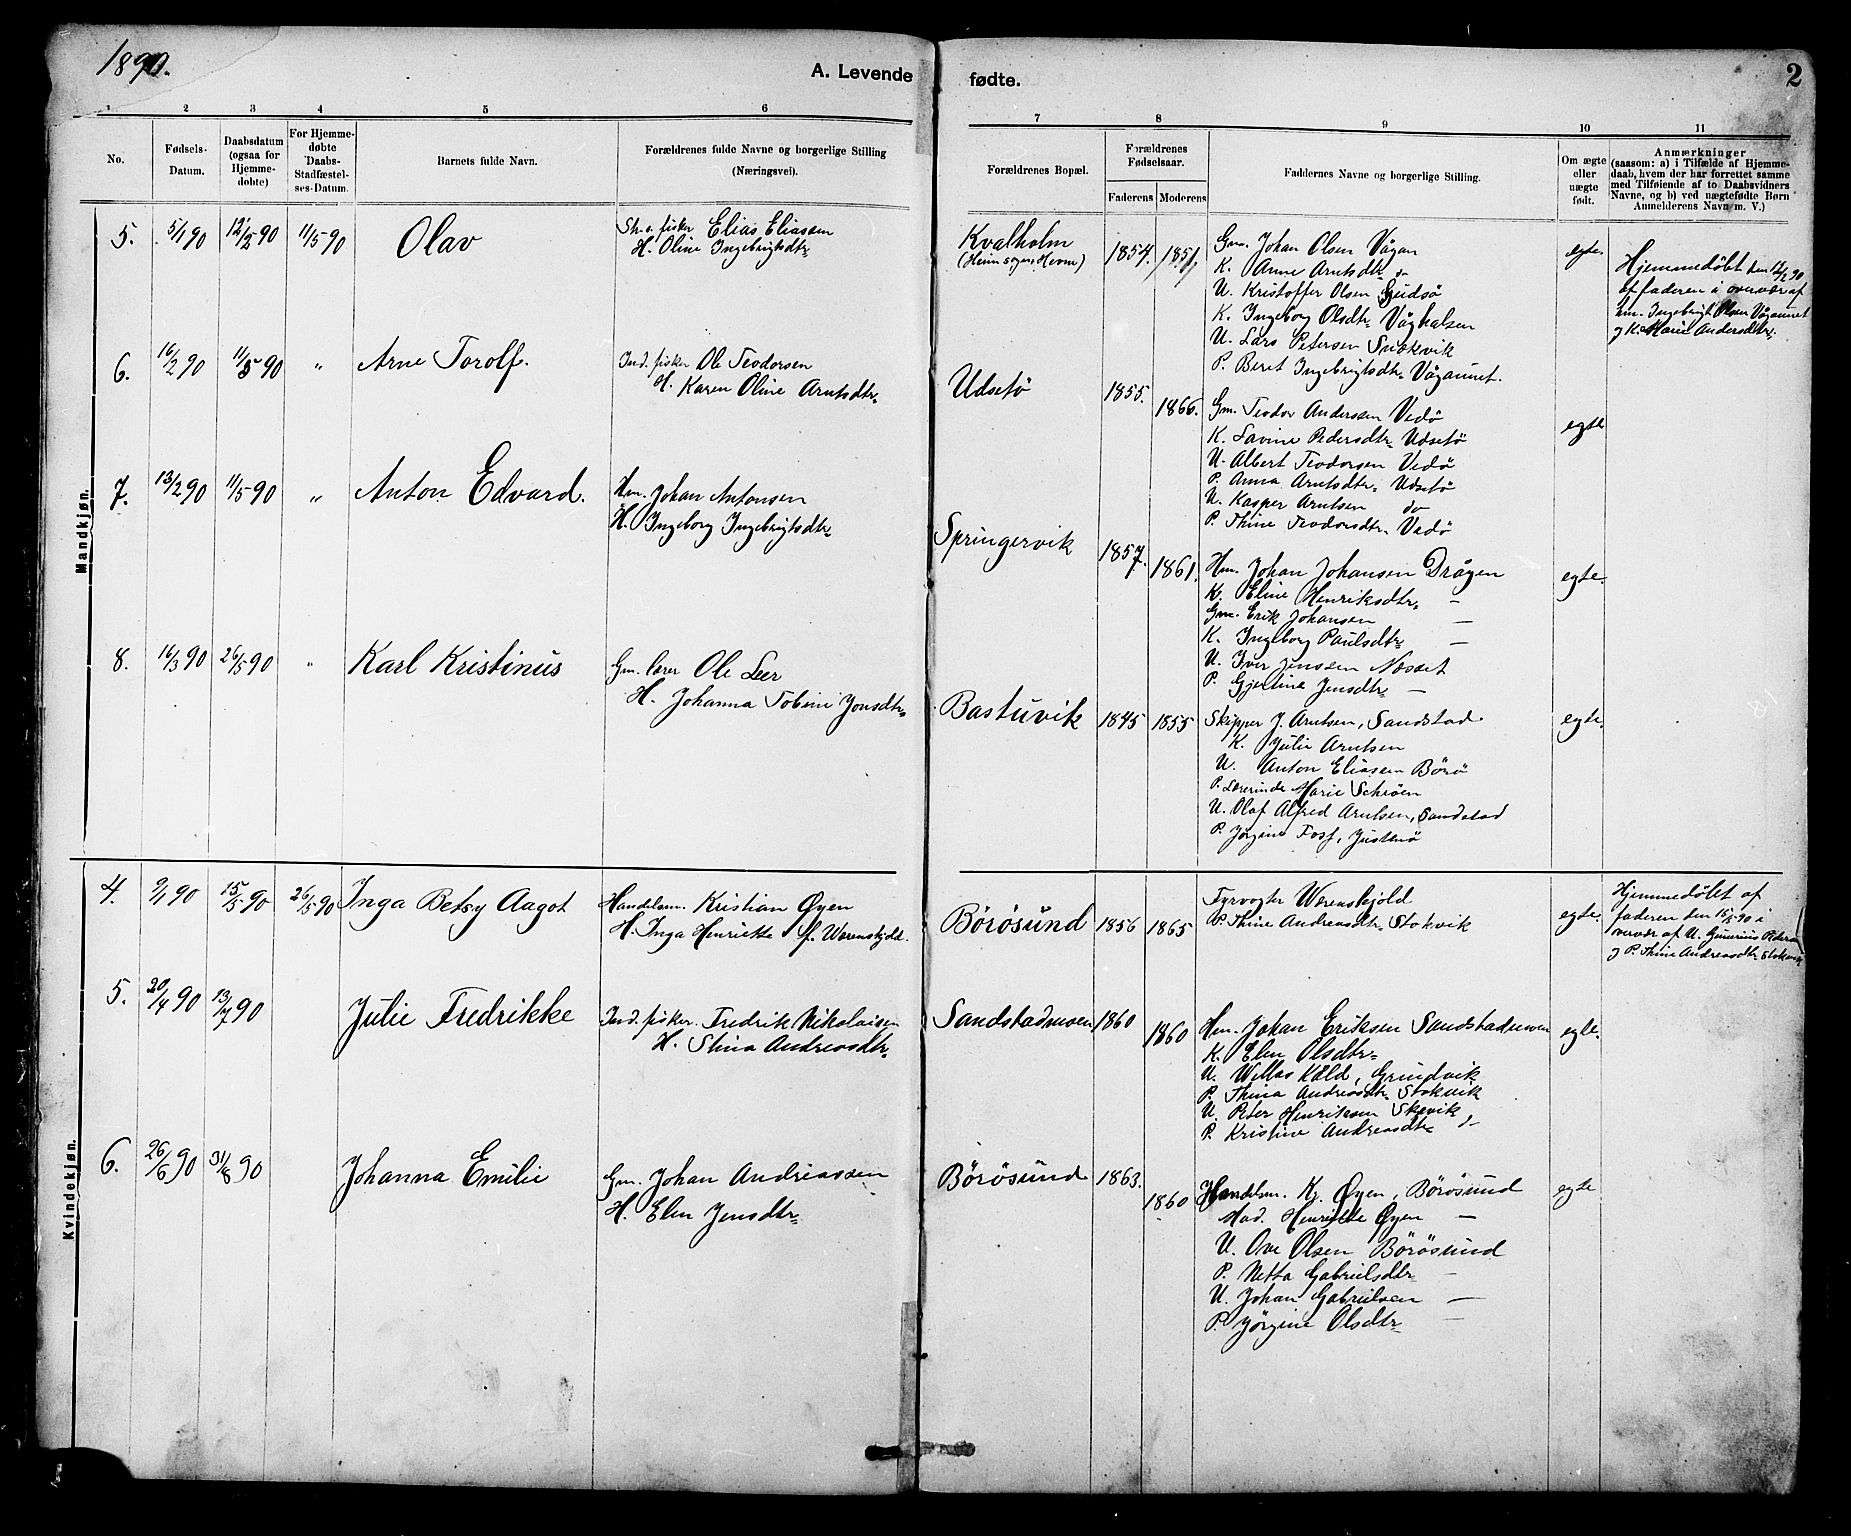 1890.
A. Levende fødte.
2
1 2 3 4 5 6 7 8 9 10 11
No.
Fødsels-
Datum.
Daabsdatum
(ogsaa for
Hjemme-
døbte)
For Hjemme-
døbte
Daabs-
Stadfæstel-
ses-Datum.
Barnets fulde Navn.
Forældrenes fulde Navne og borgerlige Stilling
(Næringsvei).
Forældrenes Bopæl.
Forældrenes
Fødselsaar.
Faderens Moderens
Faddernes Navne og borgerlige Stilling.
Om ægte
eller
uægte
født.
Anmærkninger
(saasom: a) i Tilfælde af Hjemme-
daab, hvem der har forrettet samme
med Tilføiende af to Daabsvidners
Navne, og b) ved uægtefødte Børn
Anmelderens Navn m. V.)
Mandkjøn.
5. 5/1 90 12/2 90 11/5 90 Olav
Str. o. fisker Elias Eliassen
H. Oline Ingebrigtsdtr
Kvalholm
(Heim sogn, Hevne)
1854. 1851.
Gm. Johan Olsen Vågan
K. Anne Arntsdtr do
U. Kristoffer Olsen Gudsø
K. Ingeborg Olsdtr Våghalsen
U. Lars Petersen Snekvik
P. Beret Ingebrigtsdtr Vågaunet.
egte.
Hjemmedøbt den 12/2 90
af faderen i overvær af
hm. Ingebrigt Olsen Vågaunet
og K. Marie Andersdtr.
6. 16/2 90 11/5 90 " Arne Torolf.
Ind. fisker Ole Teodorsen
H. Karen Oline Arntsdtr
Udsetø
1855. 1866.
Gm. Teodor Anderssen Vedø
K. Lavine Pedersdtr Udsetø
U. Albert Teodorsen Vedø
P. Anna Arntsdtr Udsetø
U. Kasper Arntsen do
P. Thine Teodorsdtr Vedø
egte
7. 13/2 90 11/5 90 " Anton Edvard.
Hm. Johan Antonsen
H. Ingeborg Ingebrigtsdtr
Springervik
1857. 1861.
Hm. Johan Johansen Drågen
K. Eline Henriksdtr —
Gm. Erik Johansen —
K. Ingeborg Paulsdtr —
U. Iver Jenssen Nesset
P. Gjertine Jensdtr —
egte.
8. 16/3 90 26/5 90 " Karl Kristinus
Gm. lærer Ole Leer
H. Johanna Tobine Jonsdtr
Bastuvik
1845 1855
Skipper J. Arntsen, Sandstad
K. Julie Arntsen
U. Anton Eliasen Börö
P. Lærerinde Marie Schrøen
U. Olaf Alfred Arntsen, Sandstad
P. Jørgine Fosf, Justenø
egte.
Kvindekjøn.
4. 9/1 90 15/5 90 26/5 90 Inga Betsy Aagot
Handelsm. Kristian Øyen
H. Inga Henriette f. Werenskjold.
Börösund
1856 1865
Fyrvogter Werenskjold
P. Thine Andreasdtr Stokvik
egte.
Hjemmedøbt af
faderen den 15/5 90 i
overvær af U. Gunerius Pederse
og P. Thine Andreasdtr Stokvik
5. 20/4 90 13/7 90 Julie Fredrikke
Ind. fisker. Fredrik Nikolaisen
H. Stina Andreasdtr
Sandstadmoen
1860 1860
Hm. Johan Eriksen Sandstadmoen
K. Elen Olsdtr
U. Willas Kåld, Grindvik
P. Thina Andreasdtr Stokvik
U. Peter Henriksen Skevik
P. Kristine Andreasdtr
egte.
6. 26/6 90 31/8 90 Johanna Emilie
Gm. Johan Andreassen
H. Elen Jensdtr
Börösund
1863. 1860
Handelsm. Kr. Øyen, Börösund
Mad. Henriette Øyen —
U. Ove Olsen Börösund
P. Netta Gabrielsdtr —
U. Johan Gabrielsen —
P. Jørgine Olsdtr —
egte